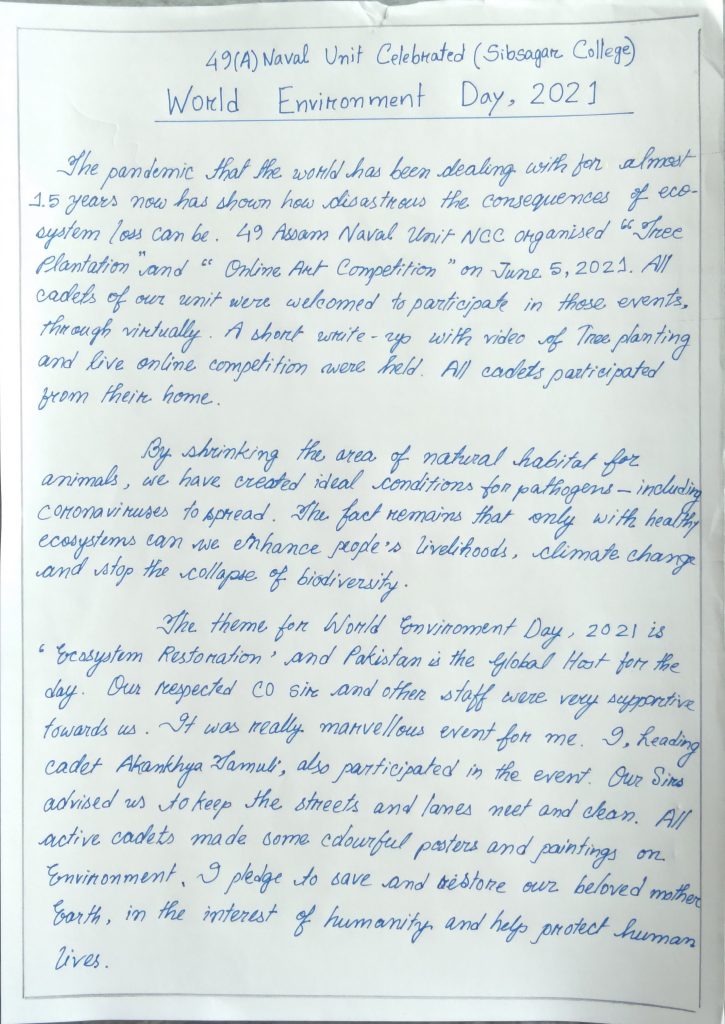 49(A) Naval Unit Celebrated (Sibsagar College)
World Environment Day, 2021
The pandemic that the world has been dealing with for almost
1.5 years now has shown how disastrous the consequences of eco-
system loss can be. 49 Assam Naval Unit NCC organised "Tree
Plantation" and " Online Art Competition " on June 5, 2021. All
cadets of our unit were welcomed to participate in those events,
through virtually. A short write-up with video of Tree planting
and live online competition were held. All cadets participated
from their home.
By shrinking the area of natural habitat for
animals, we have created ideal conditions for pathogens – including
coronaviruses to spread. The fact remains that only with healthy
ecosystems can we enhance people's livelihoods, climate change
and stop the collapse of biodiversity.
The theme for World Environment Day, 2021 is
' Ecosystem Restoration ' and Pakistan is the Global Host for the
day. Our respected CO sir and other staff were very supportive
towards us. It was really marvellous event for me. I, heading
cadet Akankhya Tamuli, also participated in the event. Our Sirs
advised us to keep the streets and lanes neet and clean. All
active cadets made some colourful posters and paintings on
Environment. I pledge to save and restore our beloved mother
Earth, in the interest of humanity and help protect human
lives.